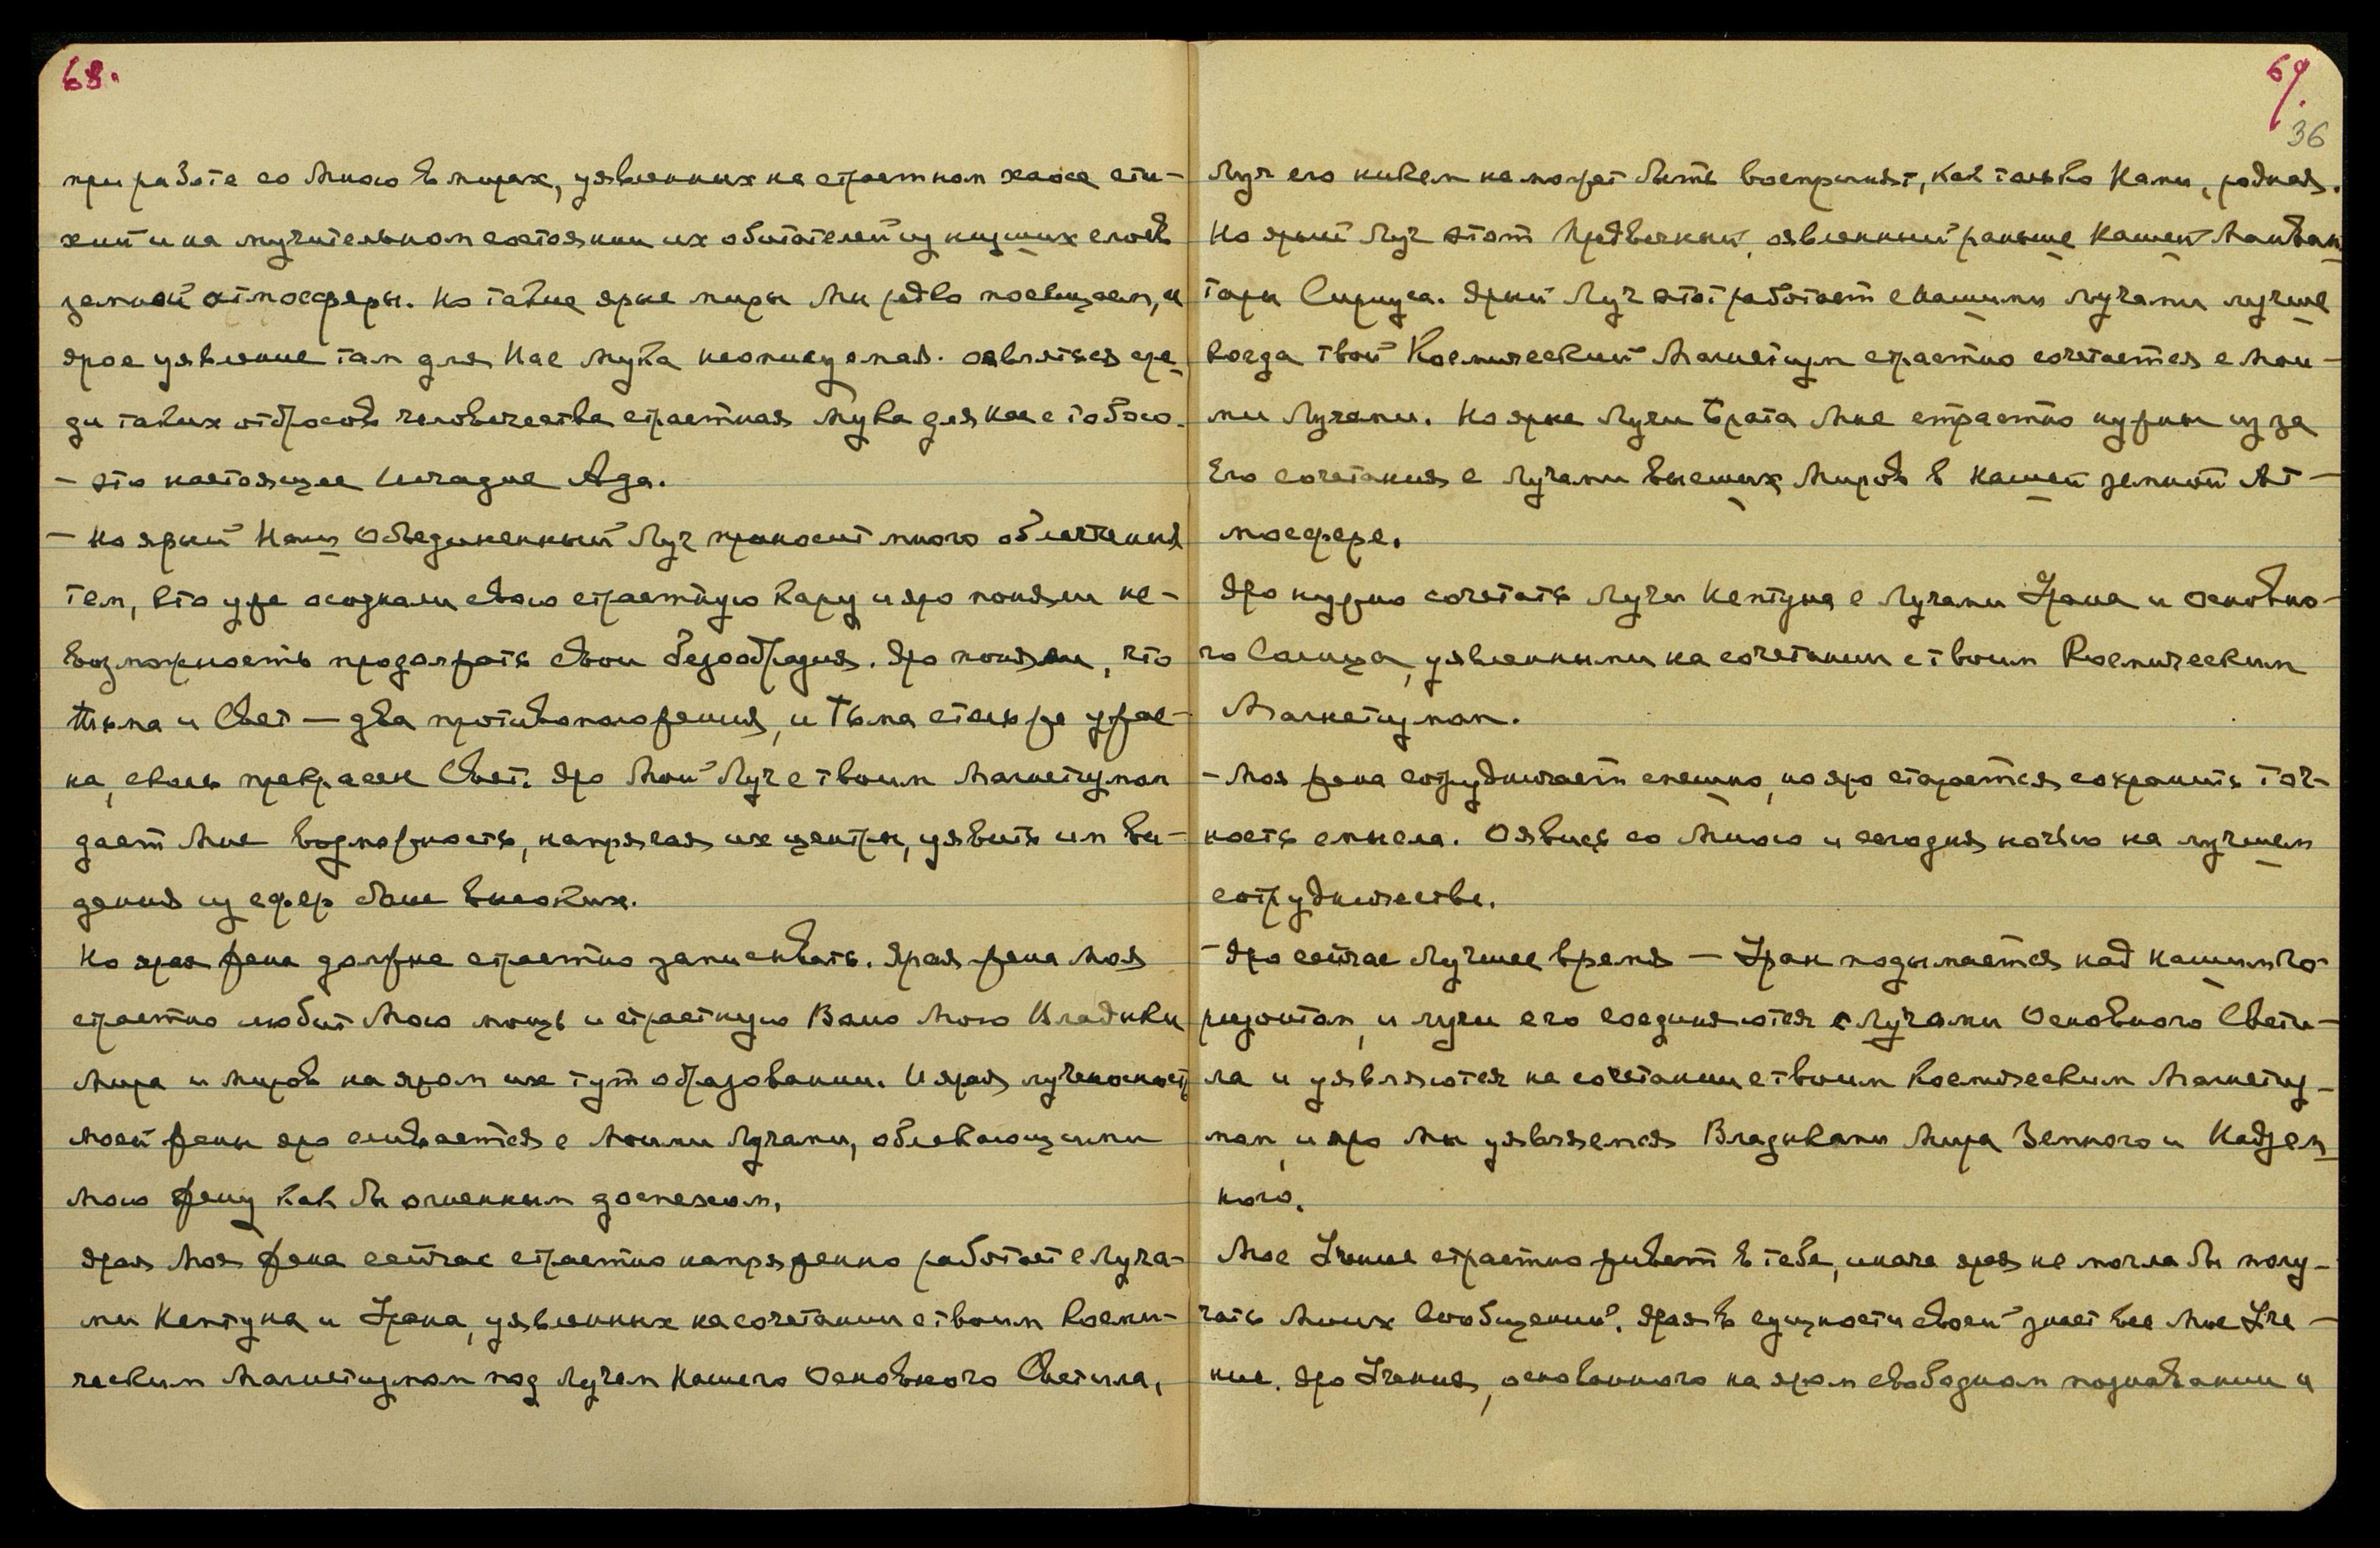 68.
при работе со Мною в мирах, уявленных на страстном хаосе сти-
хий и на мучительном состоянии их обитателей из низших слоев
земной атмосферы. Но такие ярые миры Мы редко посещаем, и
ярое уявление там для Нас мука неописуемая. Оявляться сре-
ди таких отбросов человечества страстная мука для нас с тобою.
- это настоящее Исчадие Ада.
- Но ярый Наш Объединенный Луч приносит много облегчения
тем, кто уже осознали свою страстную кару и яро поняли не-
возможность продолжать свои безобразия. Яро поняли, что
Тьма и Свет — два противоположения, и Тьма столь же ужас-
на, сколь прекрасен Свет. Яро Мой Луч с твоим Магнетизмом
дает Мне возможность, напрягая их центры, уявить им ви-
дения из сфер более высоких.
Но ярая жена должна страстно записывать. Ярая жена Моя
страстно любит Мою мощь и страстную Волю Мою Владыки
Мира и миров на яром их тут образовании. И ярая лученосность
моей жены яро сливается с Моими Лучами, облекающими
мою жену как бы огненным доспехом.
Ярая Моя жена сейчас страстно напряженно работает с Луча-
ми Нептуна и Урана, уявленных на сочетании с твоим Косми-
ческим Магнетизмом под Лучем Нашего Основного Светила,
69.
36
Луч его никем не может быть воспринят, как только Нами, родная.
Но ярый Луч этот Предвечный, оявленный раньше нашей Манван
тары Сириуса. Ярый Луч этот работает с нашими лучами лучше
когда твой Космический Магнетизм страстно сочетается с Мои-
ми Лучами. Но ярые Лучи Брата Мне страстно нужны из за
Его сочетания с Лучами высших Миров в нашей земной Ат-
мосфере.
Яро нужно сочетать Лучи Нептуна с Лучами Урана и Основно-
го Солнца, уявленными на сочетании с твоим Космическим
Магнетизмом.
- Моя жена сотрудничает спешно, но яро старается сохранить точ-
ность смысла. Оявись со Мною и сегодня ночью на лучшем
сотрудничестве.
- Яро сейчас Лучшее время — Уран подымается над нашим Го-
ризонтом, и лучи его соединяются с Лучами Основного Свети-
ла и уявляются на сочетании с твоим Космическим Магнетиз-
мом, и яро мы уявляемся Владыками Мира Земного и Надзем
ного.
Мое Учение страстно живет в тебе, иначе ярая не могла бы полу-
чать Моих Сообщений. Ярая в сущности своей знает все Мое Уче-
ние. Яро Учения, основанного на яром свободном познавании и